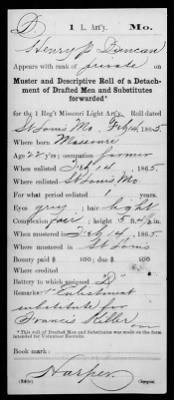 D | 1 | L. Art'y. | Mo.
Henry P Duncan
Appears with rank of private on
Muster and Descriptive Roll of a Detach-
ment of Drafted Men and Substitutes
forwarded*
for the 1 Reg't Missouri Light Art'y. Roll dated
St Louis Mo. Feby 14, 1865.
Where born Missouri
Age 22 y'rs; occupation farmer
When enlisted Feb 14, 1865
Where enlisted St Louis Mo
For what period enlisted 1 years.
Eyes gray; hair light
Complexion fair; height 5 ft. in.
When mustered in Feb 14, 1865.
Where mustered in St Louis
Bounty paid $ 100; due $ 100
Where credited
Battery to which assigned "D"
Remarks: "Enlistment
substitute for
Francis Killer
* This roll of Drafted Men and Substitutes was made on the form
intended for Volunteer Recruits.
Book mark:
Harper
Copyist.